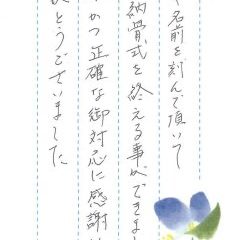 名前を刻んで頂いて
納骨式を終える事ができまし
かつ正確な御対応に感謝
とうございました